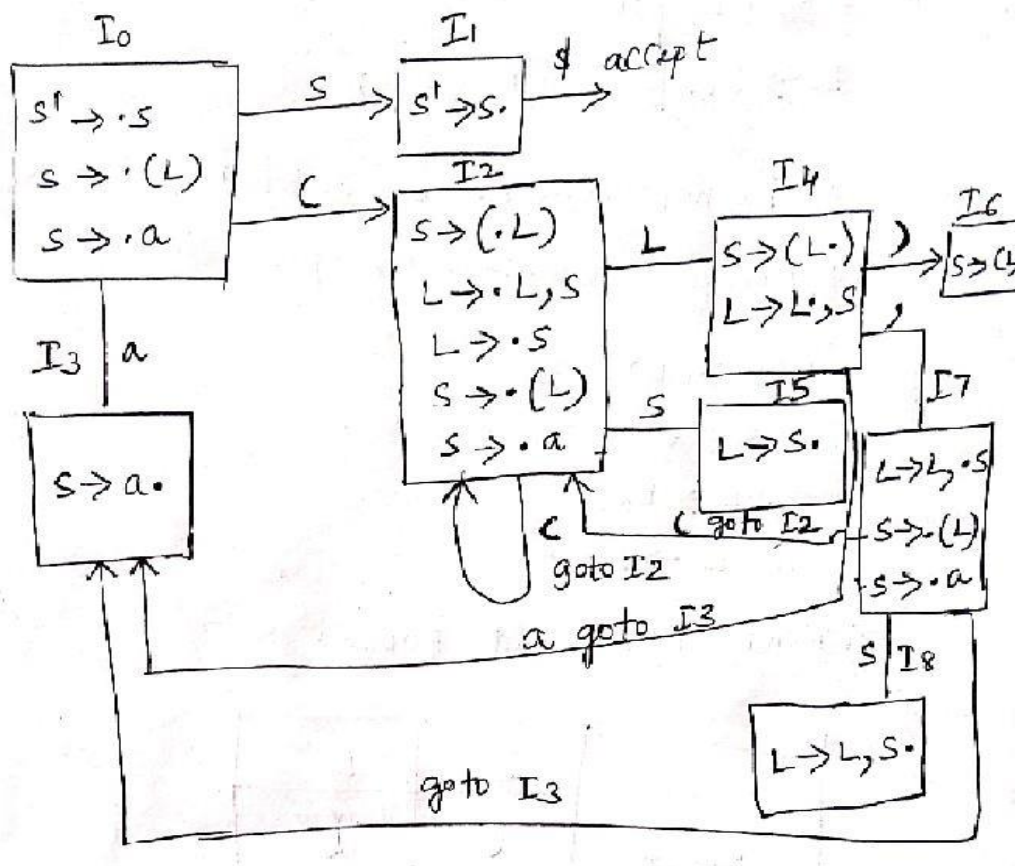 I0
S' → ·S
S → ·(L)
S → ·a
S
(
I1
S' → S·
$ accept
I2
S → (·L)
L → ·L, S
L → ·S
S → ·(L)
S → ·a
L
S
I4
S → (L·)
L → L·, S
)
,
I6
S → (L
I3
a
S → a·
I5
L → S·
I7
L → L, ·S
S → ·(L)
S → ·a
(
goto I2
( goto I2
a goto I3
S
I8
L → L, S·
goto I3